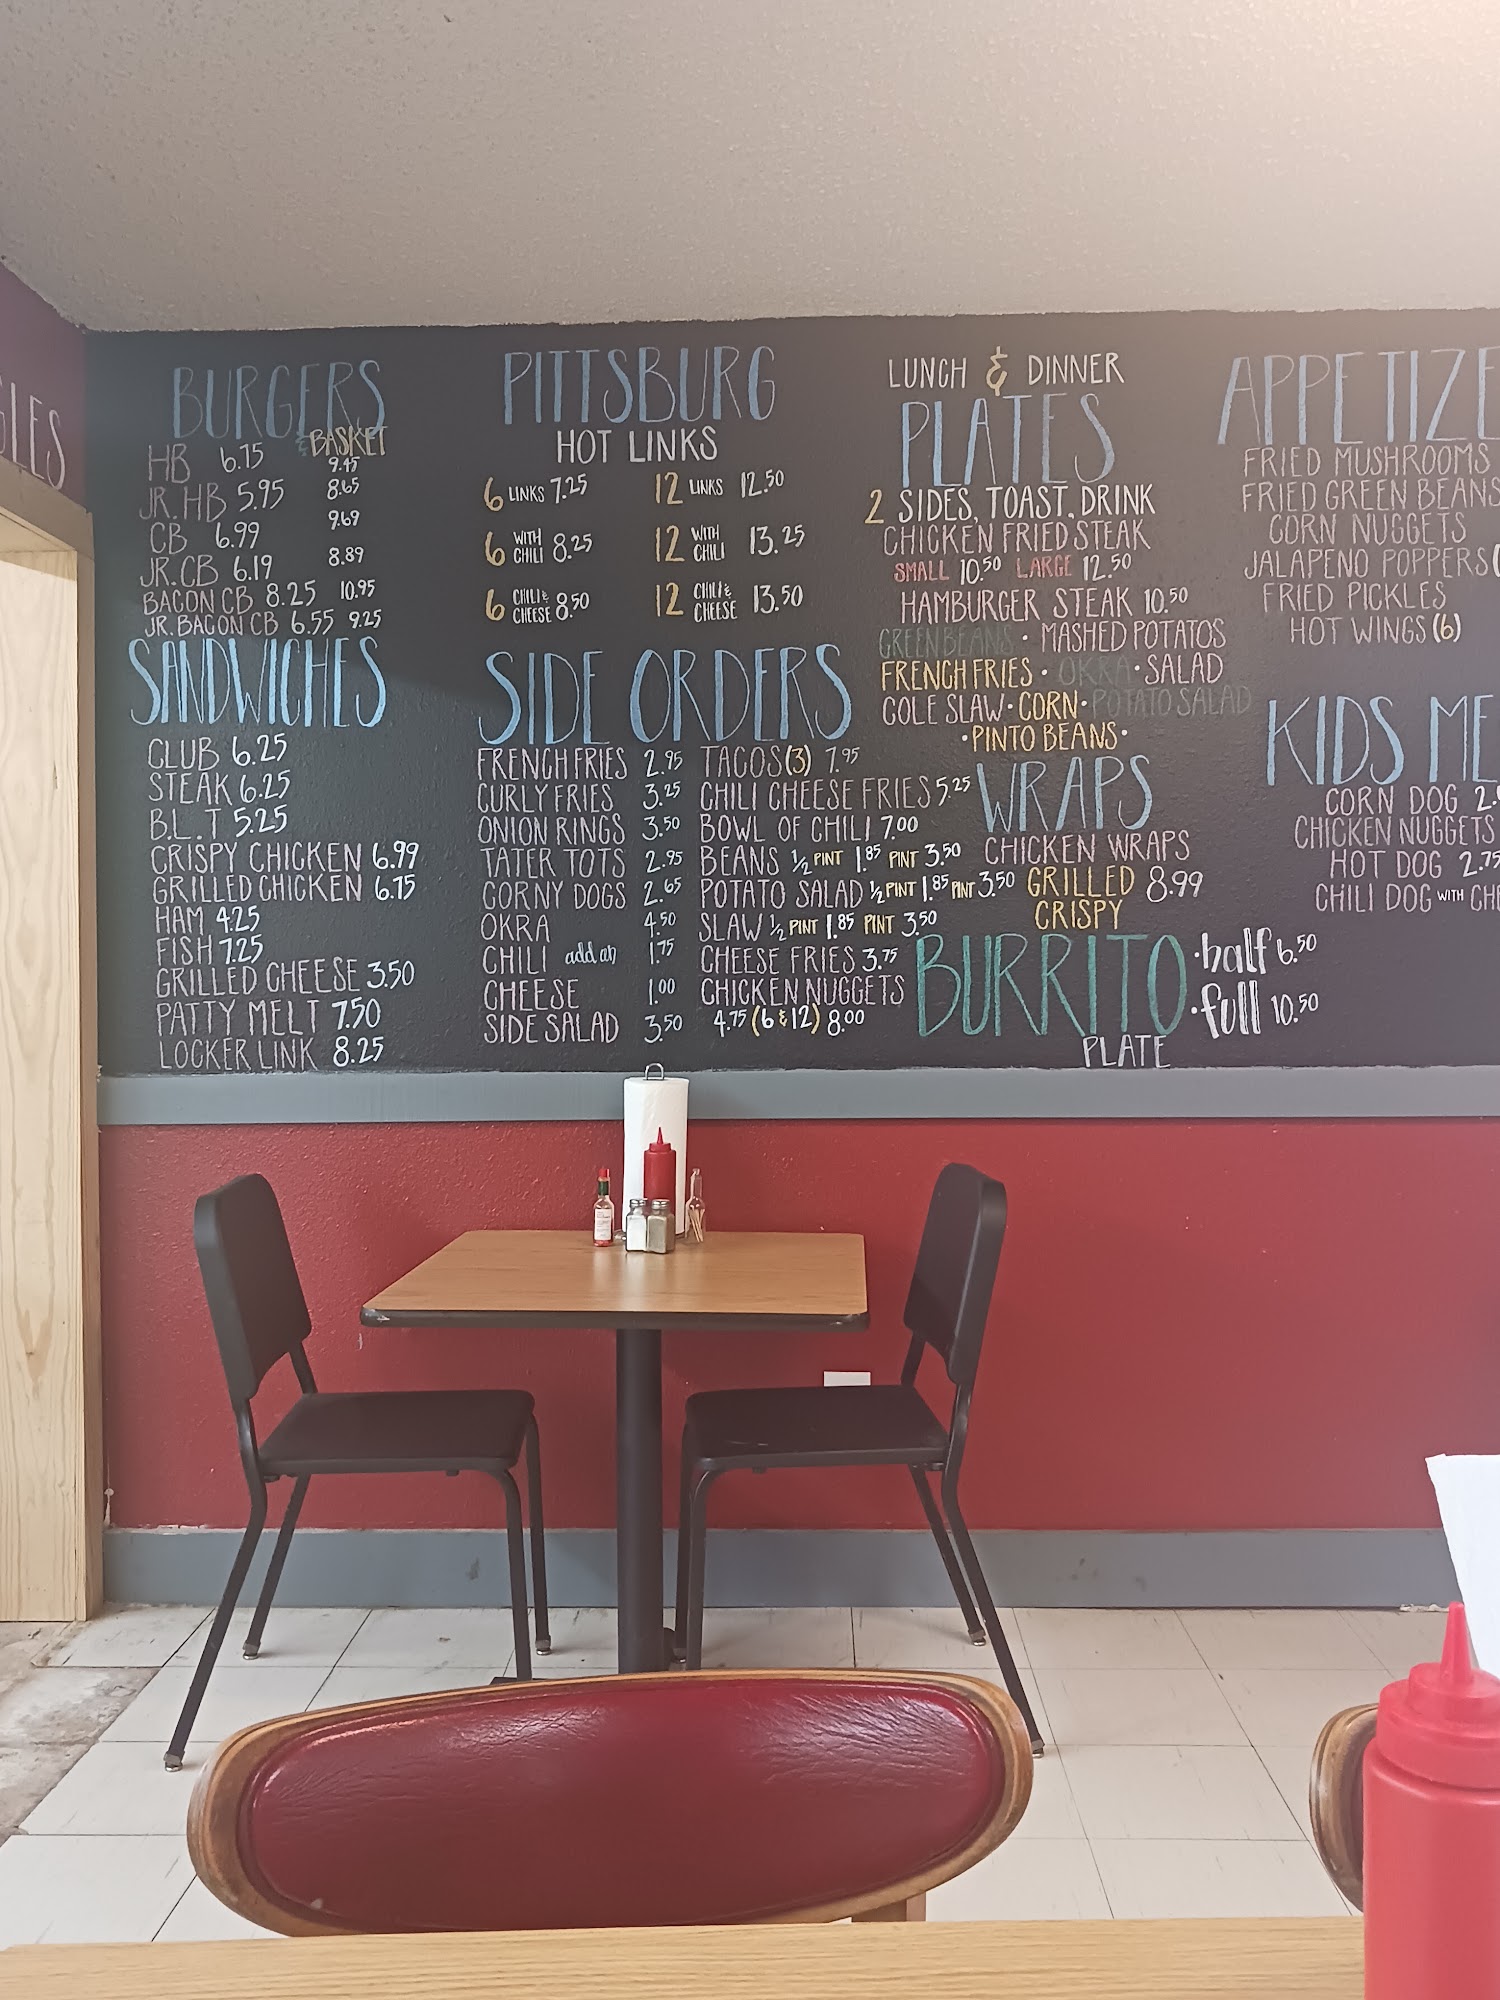 GLES
BURGERS
& BASKET
HB 6.75 9.45
JR. HB 5.95 8.65
CB 6.99 9.69
JR. CB 6.19 8.89
BACON CB 8.25 10.95
JR. BACON CB 6.55 9.25
SANDWICHES
CLUB 6.25
STEAK 6.25
B.L.T 5.25
CRISPY CHICKEN 6.99
GRILLED CHICKEN 6.75
HAM 4.25
FISH 7.25
GRILLED CHEESE 3.50
PATTY MELT 7.50
LOCKER LINK 8.25
PITTSBURG
HOT LINKS
6 LINKS 7.25 12 LINKS 12.50
6 WITH CHILI 8.25 12 WITH CHILI 13.25
6 CHILI & CHEESE 8.50 12 CHILI & CHEESE 13.50
SIDE ORDERS
FRENCH FRIES 2.95
CURLY FRIES 3.25
ONION RINGS 3.50
TATER TOTS 2.95
CORNY DOGS 2.65
OKRA 4.50
CHILI add an 1.75
CHEESE 1.00
SIDE SALAD 3.50
TACOS (3) 7.95
CHILI CHEESE FRIES 5.25
BOWL OF CHILI 7.00
BEANS 1/2 PINT 1.85 PINT 3.50
POTATO SALAD 1/2 PINT 1.85 PINT 3.50
SLAW 1/2 PINT 1.85 PINT 3.50
CHEESE FRIES 3.75
CHICKEN NUGGETS
4.75 (6 & 12) 8.00
LUNCH & DINNER
PLATES
2 SIDES, TOAST, DRINK
CHICKEN FRIED STEAK
SMALL 10.50 LARGE 12.50
HAMBURGER STEAK 10.50
GREEN BEANS · MASHED POTATOS
FRENCH FRIES · OKRA · SALAD
COLE SLAW · CORN · POTATO SALAD
· PINTO BEANS ·
WRAPS
CHICKEN WRAPS
GRILLED 8.99
CRISPY
BURRITO
PLATE
· half 6.50
· full 10.50
APPETIZE
FRIED MUSHROOMS
FRIED GREEN BEANS
CORN NUGGETS
JALAPENO POPPERS (
FRIED PICKLES
HOT WINGS (6)
KIDS ME
CORN DOG 2.
CHICKEN NUGGETS
HOT DOG 2.75
CHILI DOG WITH CHE